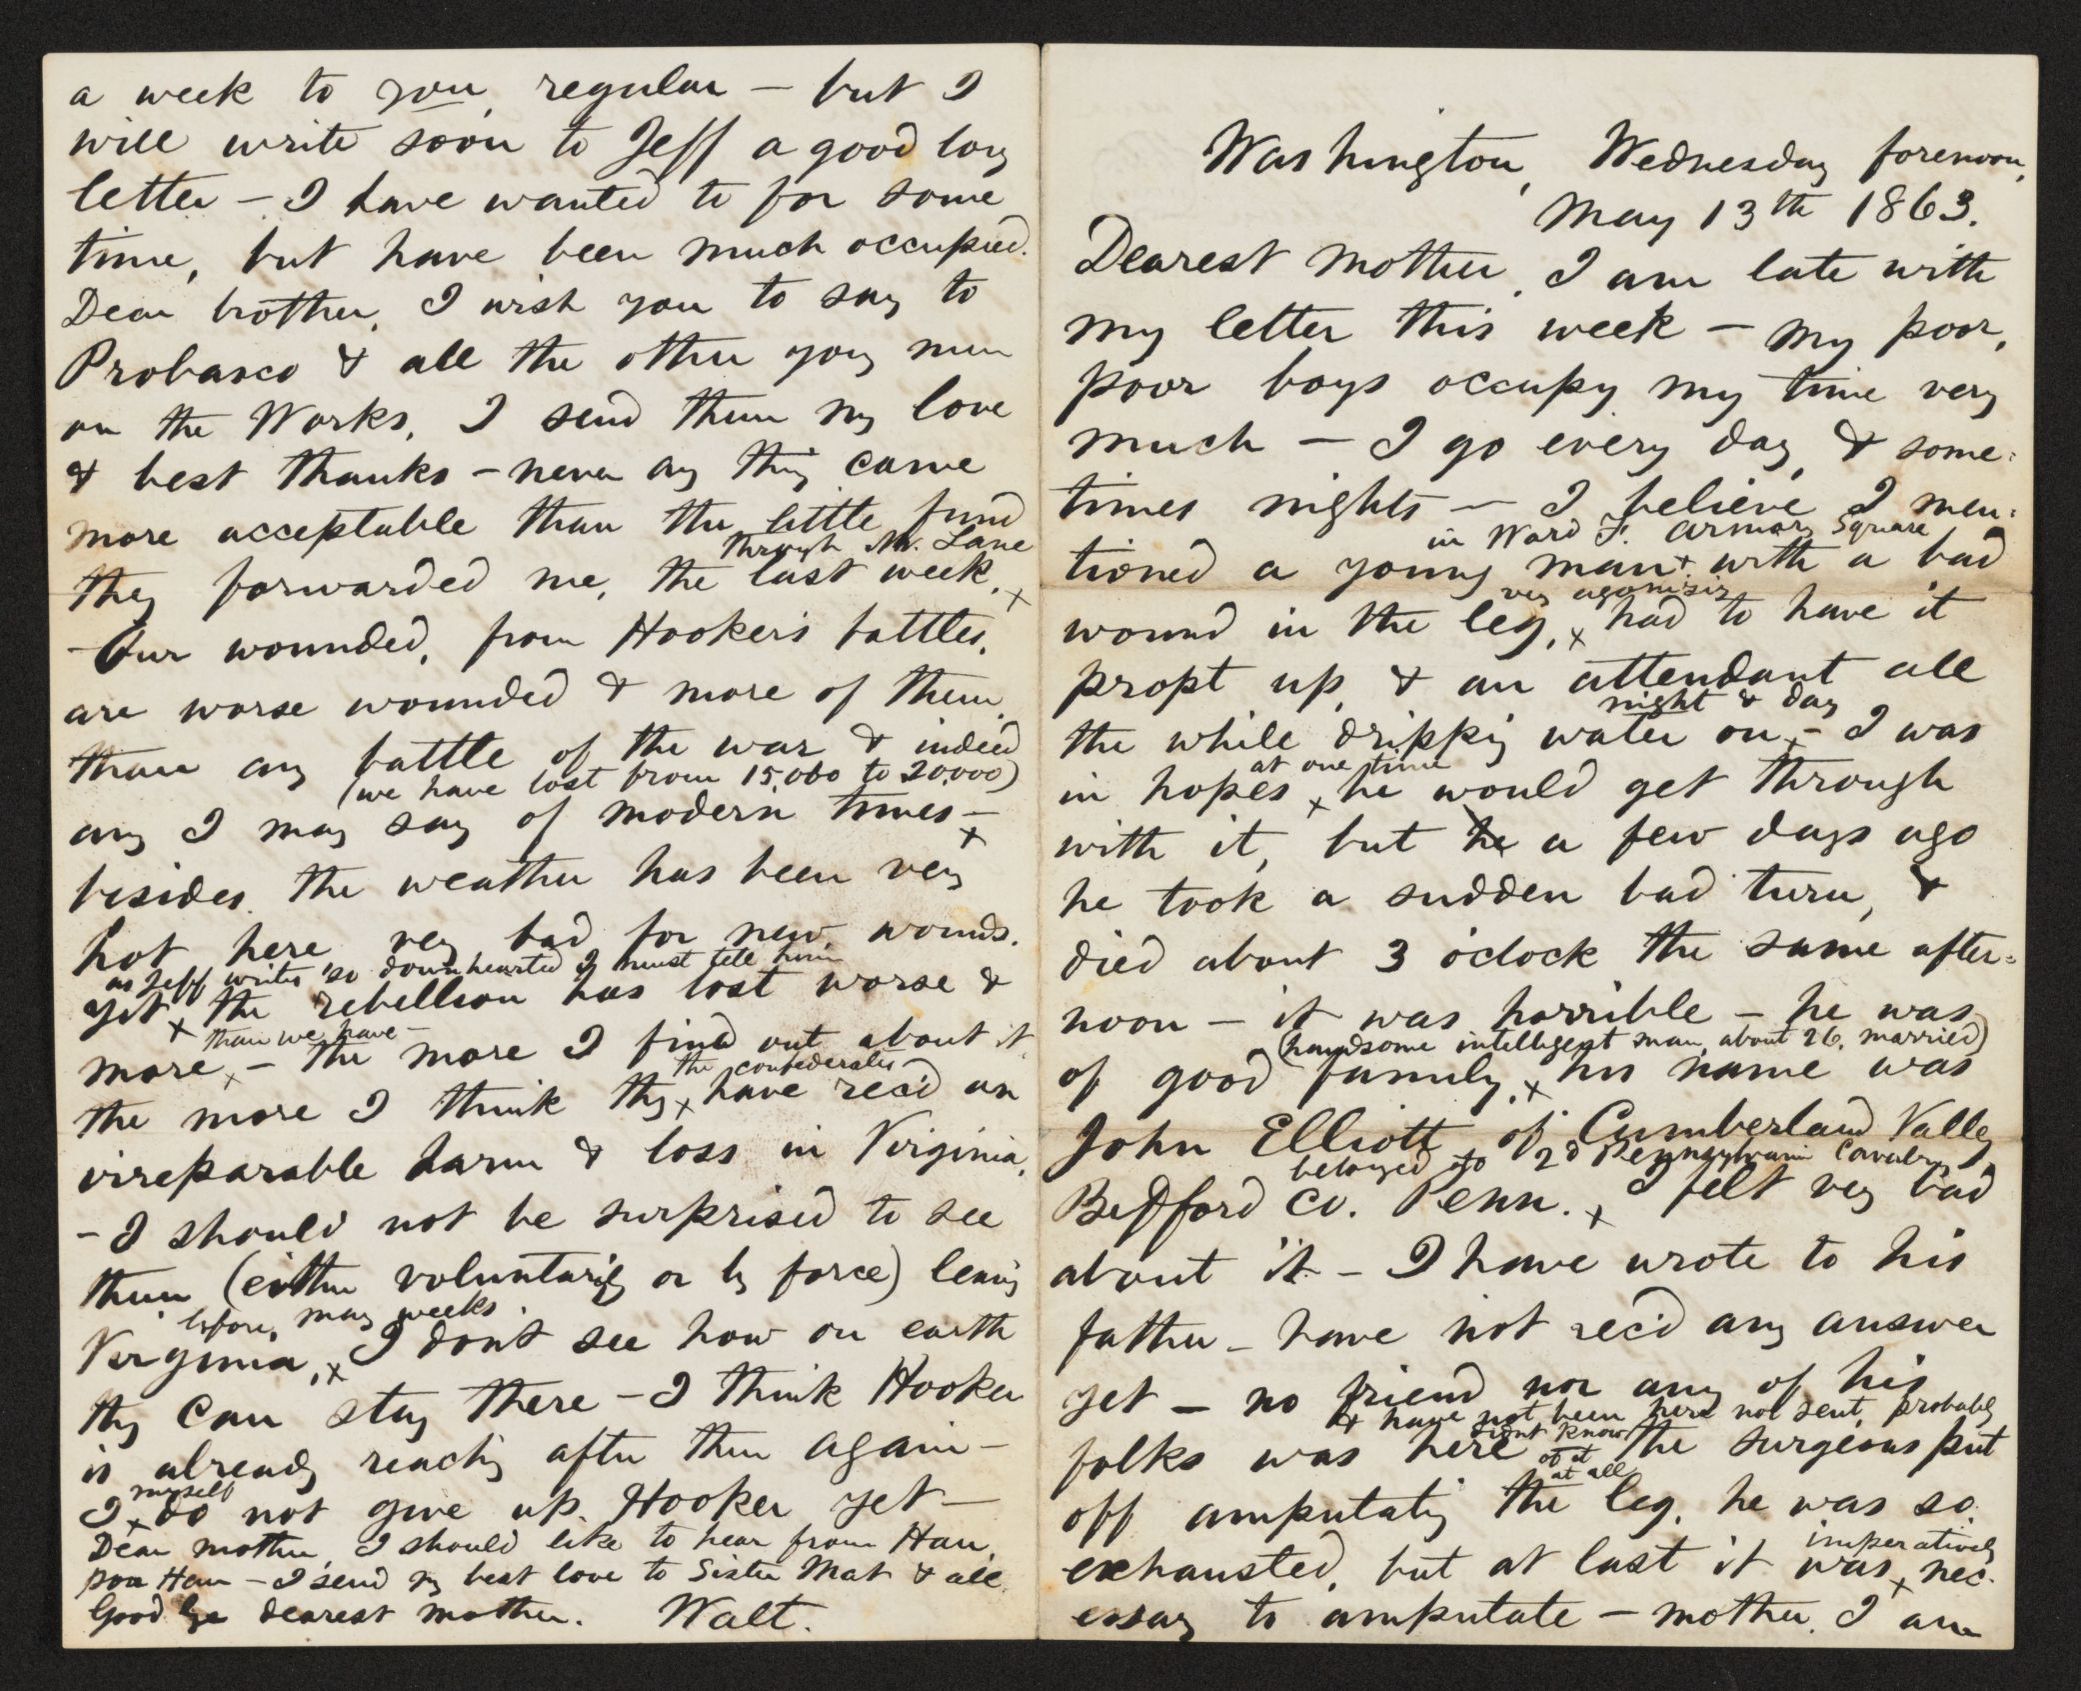 Washington, Wednesday forenoon,
May 13th 1863.
Dearest Mother, I am late with
my letter this week – my poor,
poor boys occupy my time very
much – I go every day, & some=
times nights – I believe I men=
in Ward F. Armory Square
tioned a young man x with a bad
very agonizing
wound in the leg, x had to have it
propt up, & an attendant all
night & day
the while dripping water on x – I was
at one time
in hopes x he would get through
with it, but he a few days ago
he took a sudden bad turn, &
died about 3 o'clock the same after=
noon – it was horrible – he was
(handsome intelligent man, about 26, married)
of good family, x his name was
John Elliott, of Cumberland Valley
belonged to 2d Pennsylvania Cavalry
Bedford co. Penn. x I felt very bad
about it – I have wrote to his
father – have not rec'd any answer
yet – no friend nor any of his
& have not been here nor sent, probably
didnt know
folks was here of it the surgeons put
at all
off amputating the leg, he was so
imperatively
exhausted, but at last it was x nec-
essary to amputate – mother, I am
a week to you, regular – but I
will write soon to Jeff a good long
letter – I have wanted to for some
time, but have been much occupied.
Dear brother, I wish you to say to
Probasco & all the other young men
on the Works, I send them my love
& best thanks – never any thing came
more acceptable than the little fund
through Mr. Lane
they forwarded me, the last week. x
– Our wounded, from Hooker's battles,
are worse wounded & more of them,
than any battle of the war & indeed
(we have lost from 15,000 to 20,000)
any I may say of modern times – x
besides, the weather has been very
hot here, very bad for new wounds.
as Jeff writes so downhearted I must tell him
yet x the rebellion has lost worse &
than we have –
more x – the more I find out about it
the confederates
the more I think they x have rec'd an
irreparable harm & loss in Virginia,
– I should not be surprised to see
them (either voluntarily or by force) leaving
before many weeks.
Virginia, x I dont see how on earth
they can stay there – I think Hooker
is already reaching after them again –
myself
I x do not give up Hooker yet –
Dear mother, I should like to hear from Han,
poor Han – I send my best love to Sister Mat & all
Good bye dearest mother. Walt.